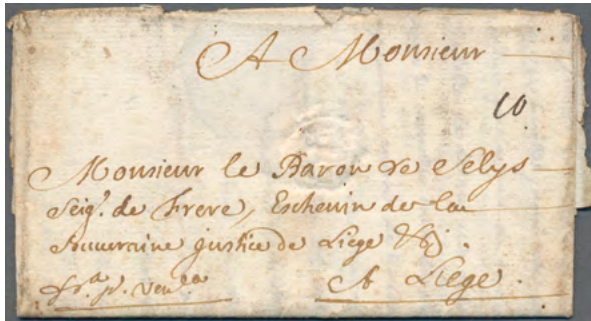 A Monsieur
10
Monsieur le Baron de Selys
Seigr. de Frere, Eschevin de la
Souveraine justice de Liege &c.
fr.a p. Ven.la
A Liege.